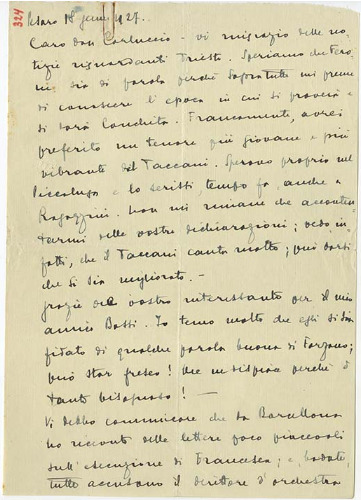 324
Pesaro 18 genn. 927.
Caro don Carluccio - vi ringrazio delle no-
tizie riguardanti Trieste. Speriamo che
sia di parola perchè soprattutto mi preme
di conoscere l'epoca in cui si proverà e
si darà Conchita. Francamente, avrei
preferito un tenore più giovane e più
vibrante del Taccani. Speravo proprio nel
Piccaluga e lo scrissi, tempo fa, anche a
Ragazzini. Non mi rimane che acconten-
tarmi delle vostre dichiarazioni; vedo, in-
fatti, che il Taccani canta molto; può darsi
che si sia migliorato. -
Grazie del vostro interessamento per il mio
amico Bassi. Io temo molto che egli si sia
fidato di qualche parola buona di Forzano;
può star fresco! Me ne dispiace perchè è
tanto bisognoso! -
Vi debbo comunicare che da Barcellona
ho ricevuto delle lettere poco piacevoli
sull'esecuzione di Francesca; e, badate,
tutte accusano il direttore d'orchestra